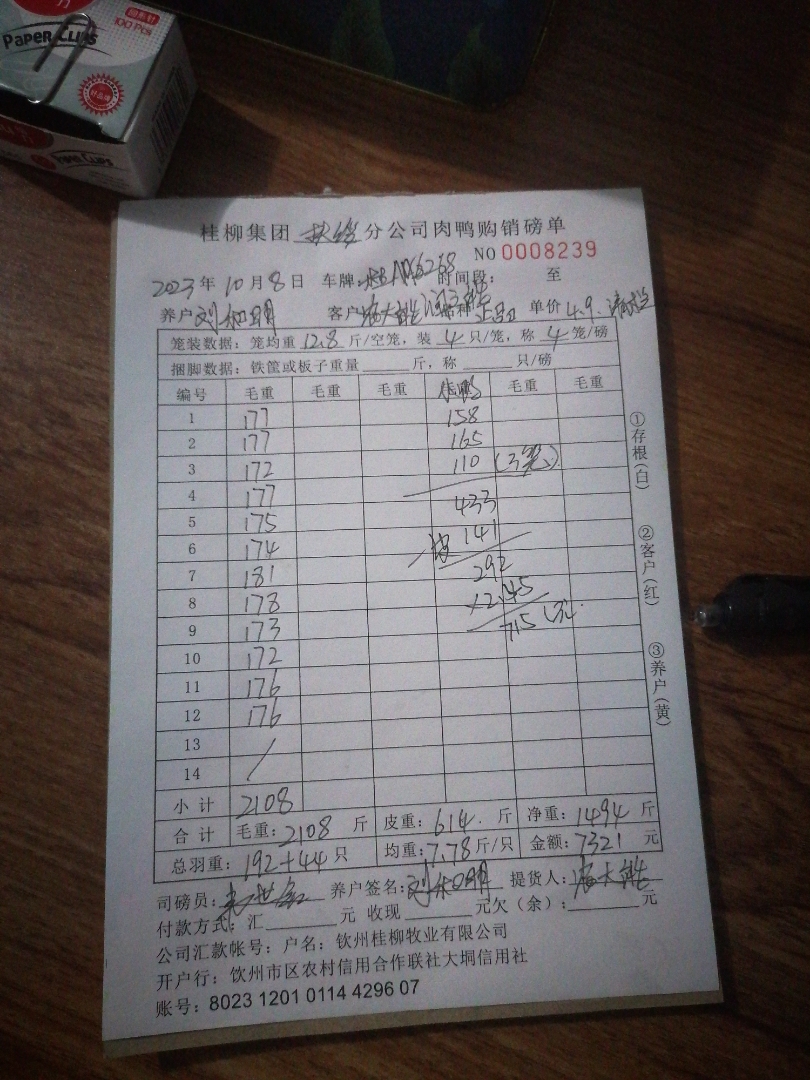 Paper CLIPS
100 Pcs
PAPER CLIPS
桂柳集团 分公司肉鸭购销磅单
NO 0008239
2023年10月8日 车牌: 时间段: 至
养户 客户 单价 4.9.
笼装数据: 笼均重 12.8 斤/空笼, 装 4 只/笼, 称 4 笼/磅
捆脚数据: 铁筐或板子重量 斤, 称 只/磅
编号 毛重 毛重 毛重 毛重 毛重
1 177 158
2 177 165
3 172 110 (3笼)
4 177 433
5 175 141
6 174 292
7 181 ×2.45
8 178 715 元
9 173
10 172
11 176
12 176
13
14
小计 2108
合计 毛重: 2108 斤 皮重: 614. 斤 净重: 1494 斤
总羽重: 192+44 只 均重: 7.78 斤/只 金额: 7321 元
司磅员: 养户签名: 提货人:
付款方式: 汇 元 收现 元欠(余): 元
公司汇款帐号: 户名: 钦州桂柳牧业有限公司
开户行: 钦州市区农村信用合作联社大垌信用社
账号: 8023 1201 0114 4296 07
①存根(白)
②客户(红)
③养户(黄)